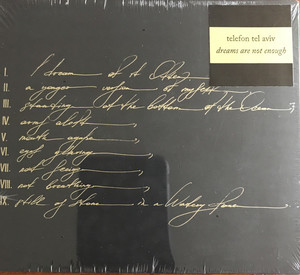 telefon tel aviv
dreams are not enough
I. I dream of it often:
II. a younger version of myself,
III. standing at the bottom of the ocean;
IV. arms aloft,
V. mouth agape,
VI. eyes glaring,
VII. not seeing,
VIII. not breathing,
IX. still as stone in a watery fane.